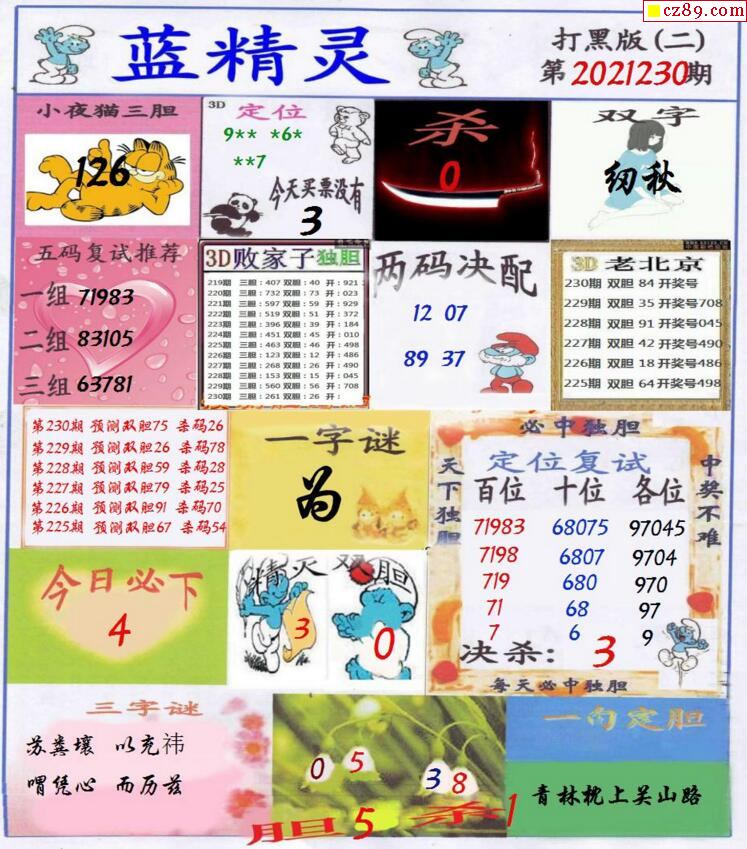 cz89.com
蓝精灵
打黑版(二)
第2021230期
小夜猫三胆
126
3D 定位
9** *6*
**7
今天买票没有
3
杀
0
双字
纫秋
五码复试推荐
一组 71983
二组 83105
三组 63781
3D败家子独胆
219期 三胆:407 双胆:40 开:921
220期 三胆:732 双胆:73 开:023
221期 三胆:597 双胆:59 开:929
222期 三胆:519 双胆:51 开:372
223期 三胆:396 双胆:39 开:184
224期 三胆:451 双胆:45 开:010
225期 三胆:463 双胆:46 开:498
226期 三胆:123 双胆:12 开:486
227期 三胆:268 双胆:26 开:490
228期 三胆:153 双胆:15 开:045
229期 三胆:560 双胆:56 开:708
230期 三胆:261 双胆:26 开:
两码决配
12 07
89 37
3D 老北京
230期 双胆 84 开奖号
229期 双胆 35 开奖号708
228期 双胆 91 开奖号045
227期 双胆 42 开奖号490
226期 双胆 18 开奖号486
225期 双胆 64 开奖号498
第230期 预测双胆75 杀码26
第229期 预测双胆26 杀码78
第228期 预测双胆59 杀码28
第227期 预测双胆79 杀码25
第226期 预测双胆91 杀码70
第225期 预测双胆67 杀码54
一字谜
为
必中独胆
天下独胆
中奖不难
定位复试
百位 十位 各位
71983 68075 97045
7198 6807 9704
719 680 970
71 68 97
7 6 9
决杀: 3
每天必中独胆
今日必下
4
精灵双胆
3 0
三字谜
苏粪壤 以充祎
喟凭心 而历兹
0 5
3 8
胆 5 杀 1
一句定胆
青林枕上关山路